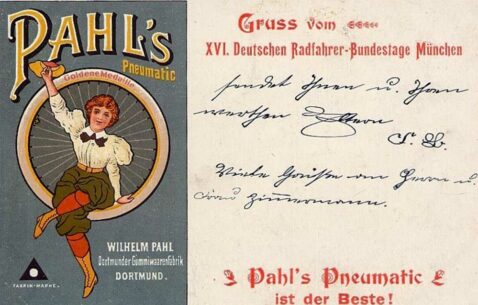 PAHL'S
Pneumatic
Goldene Medaille
WILHELM PAHL
Dortmunder Gummiwaarenfabrik
DORTMUND.
FABRIK-MARKE.
Gruss vom
XVI. Deutschen Radfahrer-Bundestage München
sendet Ihnen u. Ihren
werthen Eltern
Viele Grüße an Herrn u.
Frau Zimmermann.
Pahl's Pneumatic
ist der Beste!